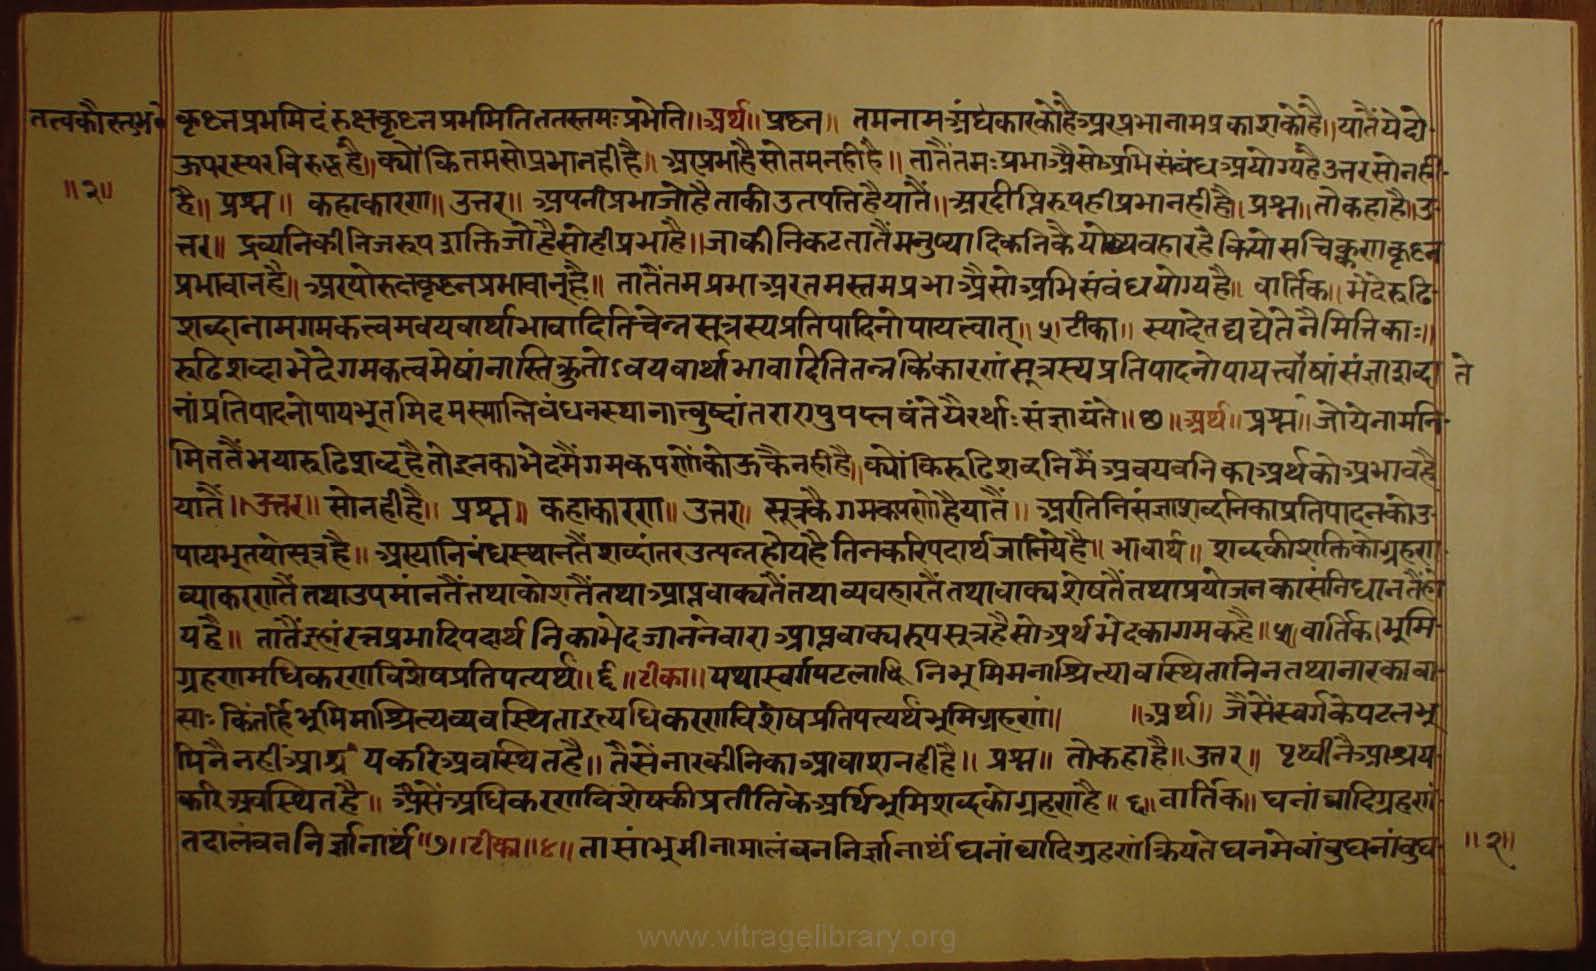 तत्वकौस्तुभ
॥२॥
कृष्टनप्रभमिदंरुक्षकृष्टनप्रभमितिततस्तमःप्रभेति॥अर्थ॥ प्रष्टन॥ तमनामअंधकारकोहैअरप्रभानामप्रकाशकोहै॥यातैंयेदो
ऊपरस्परविरुद्धहै॥क्योंकितमसोप्रभानहीहै॥ अरप्रभाहैसोतमनहीहै॥ तातैंतमःप्रभाअैसोअभिसंबंधअयोग्यहैउत्तरसोनही
है॥ प्रश्न॥ कहाकारण॥ उत्तर॥ अपनीप्रभाजोहैताकीउतपत्तिहैयातैं॥अरदीप्तिरुपहीप्रभानहीहै॥ प्रश्न॥ तोकहाहै॥उ
त्तर॥ द्रव्यनिकीनिजरुपशक्तिजोहैसोहीप्रभाहै॥जाकीनिकटतातैंमनुष्यादिकनिकैयोव्यवहारहैकियोसचिक्कणकृष्टन
प्रभावानहै॥अरयोरुक्षकृष्टनप्रभावानहै॥ तातैंतमप्रभाअरतमस्तमप्रभाअैसोअभिसंबंधयोग्यहै॥ वार्तिक॥ भेदेरुढि
शब्दानामगमकत्वमवयवार्थाभावादितिचेन्नसूत्रस्यप्रतिपादिनोपायत्वात्॥५॥टीका॥ स्यादेतद्यद्येतेनैमित्तिकाः॥
रुढिशब्दाभेदेगमकत्वमेषांनास्तिकुतोऽवयवार्थाभावादितितन्नकिंकारणंसूत्रस्यप्रतिपादनोपायत्वात्तेषांसंज्ञाशब्दा
नांप्रतिपादनोपायभूतमिदमस्मान्निबंधनस्थानात्त्तुष्दांतराण्युपप्लवंतेयैरर्थाःसंज्ञायंते॥छ॥अर्थ॥ प्रश्न॥ जोयेनामनि
मिततैंभयारुढिशब्दहैतोइनकाभेदमैंगमकपणोंकोऊकैनहीहै॥क्योंकिरुढिशब्दनिमैंअवयवनिकाअर्थकोअभावहै
यातैं॥उत्तर॥ सोनहीहै॥ प्रश्न॥ कहाकारण॥ उत्तर॥ सूत्रकैगमकपणोहैयातैं॥ अरतिनिसंज्ञाशब्दनिकाप्रतिपादनकोउ
पायभूतयोसूत्रहै॥ अस्यानिबंधस्थानतैंशब्दांतरउत्पन्नहोयहैतिनकरिपदार्थजानियेहै॥ भावार्थ॥ शब्दकीशक्तिकोग्रहण
व्याकरणतैंतथाउपमांनतैंतथाकोशतैंतथाआप्तवाक्यतैंतथाव्यवहारतैंतथावाक्यशेषतैंतथाप्रयोजनकासंनिधानतैंहो
यहै॥ तातैंइहांरत्नप्रभादिपदार्थनिकाभेदजाननेवाराआप्तवाक्यरुपसूत्रहैसोअर्थभेदकागमकहै॥५॥वार्तिक॥भूमि
ग्रहणमधिकरणविशेषप्रतिपत्यर्थं॥६॥टीका॥यथास्वर्गपटलानि निभूमिमनाश्रित्यावस्थितानिनतथानारकावा
साः किंतर्हिभूमिमाश्रित्यव्यवस्थिताइत्यधिकरणविशेषप्रतिपत्यर्थंभूमिग्रहणं॥ ॥अर्थ॥ जैसैंस्वर्गकेपटलभू
मिनैनहींआश्रयकरिअवस्थितहै॥ तैसेंनारकीनिकाआवाशनहीहै॥ प्रश्न॥ तोकहाहै॥उत्तर॥ पृथ्वीनैआश्रय
करिअवस्थितहै॥ अैसेंअधिकरणविशेषकीप्रतीतिकेअर्थिभूमिशब्दकोग्रहणहै॥ ६॥वार्तिक॥ घनांब्वादिग्रहणं
तदालंबननिर्ज्ञानार्थं॥७॥टीका॥४॥ तासांभूमीनामालंबननिर्ज्ञानार्थंघनांब्वादिग्रहणंक्रियतेघनमेवांबुघनांबुघ
ते
॥२॥
www.vitragelibrary.org